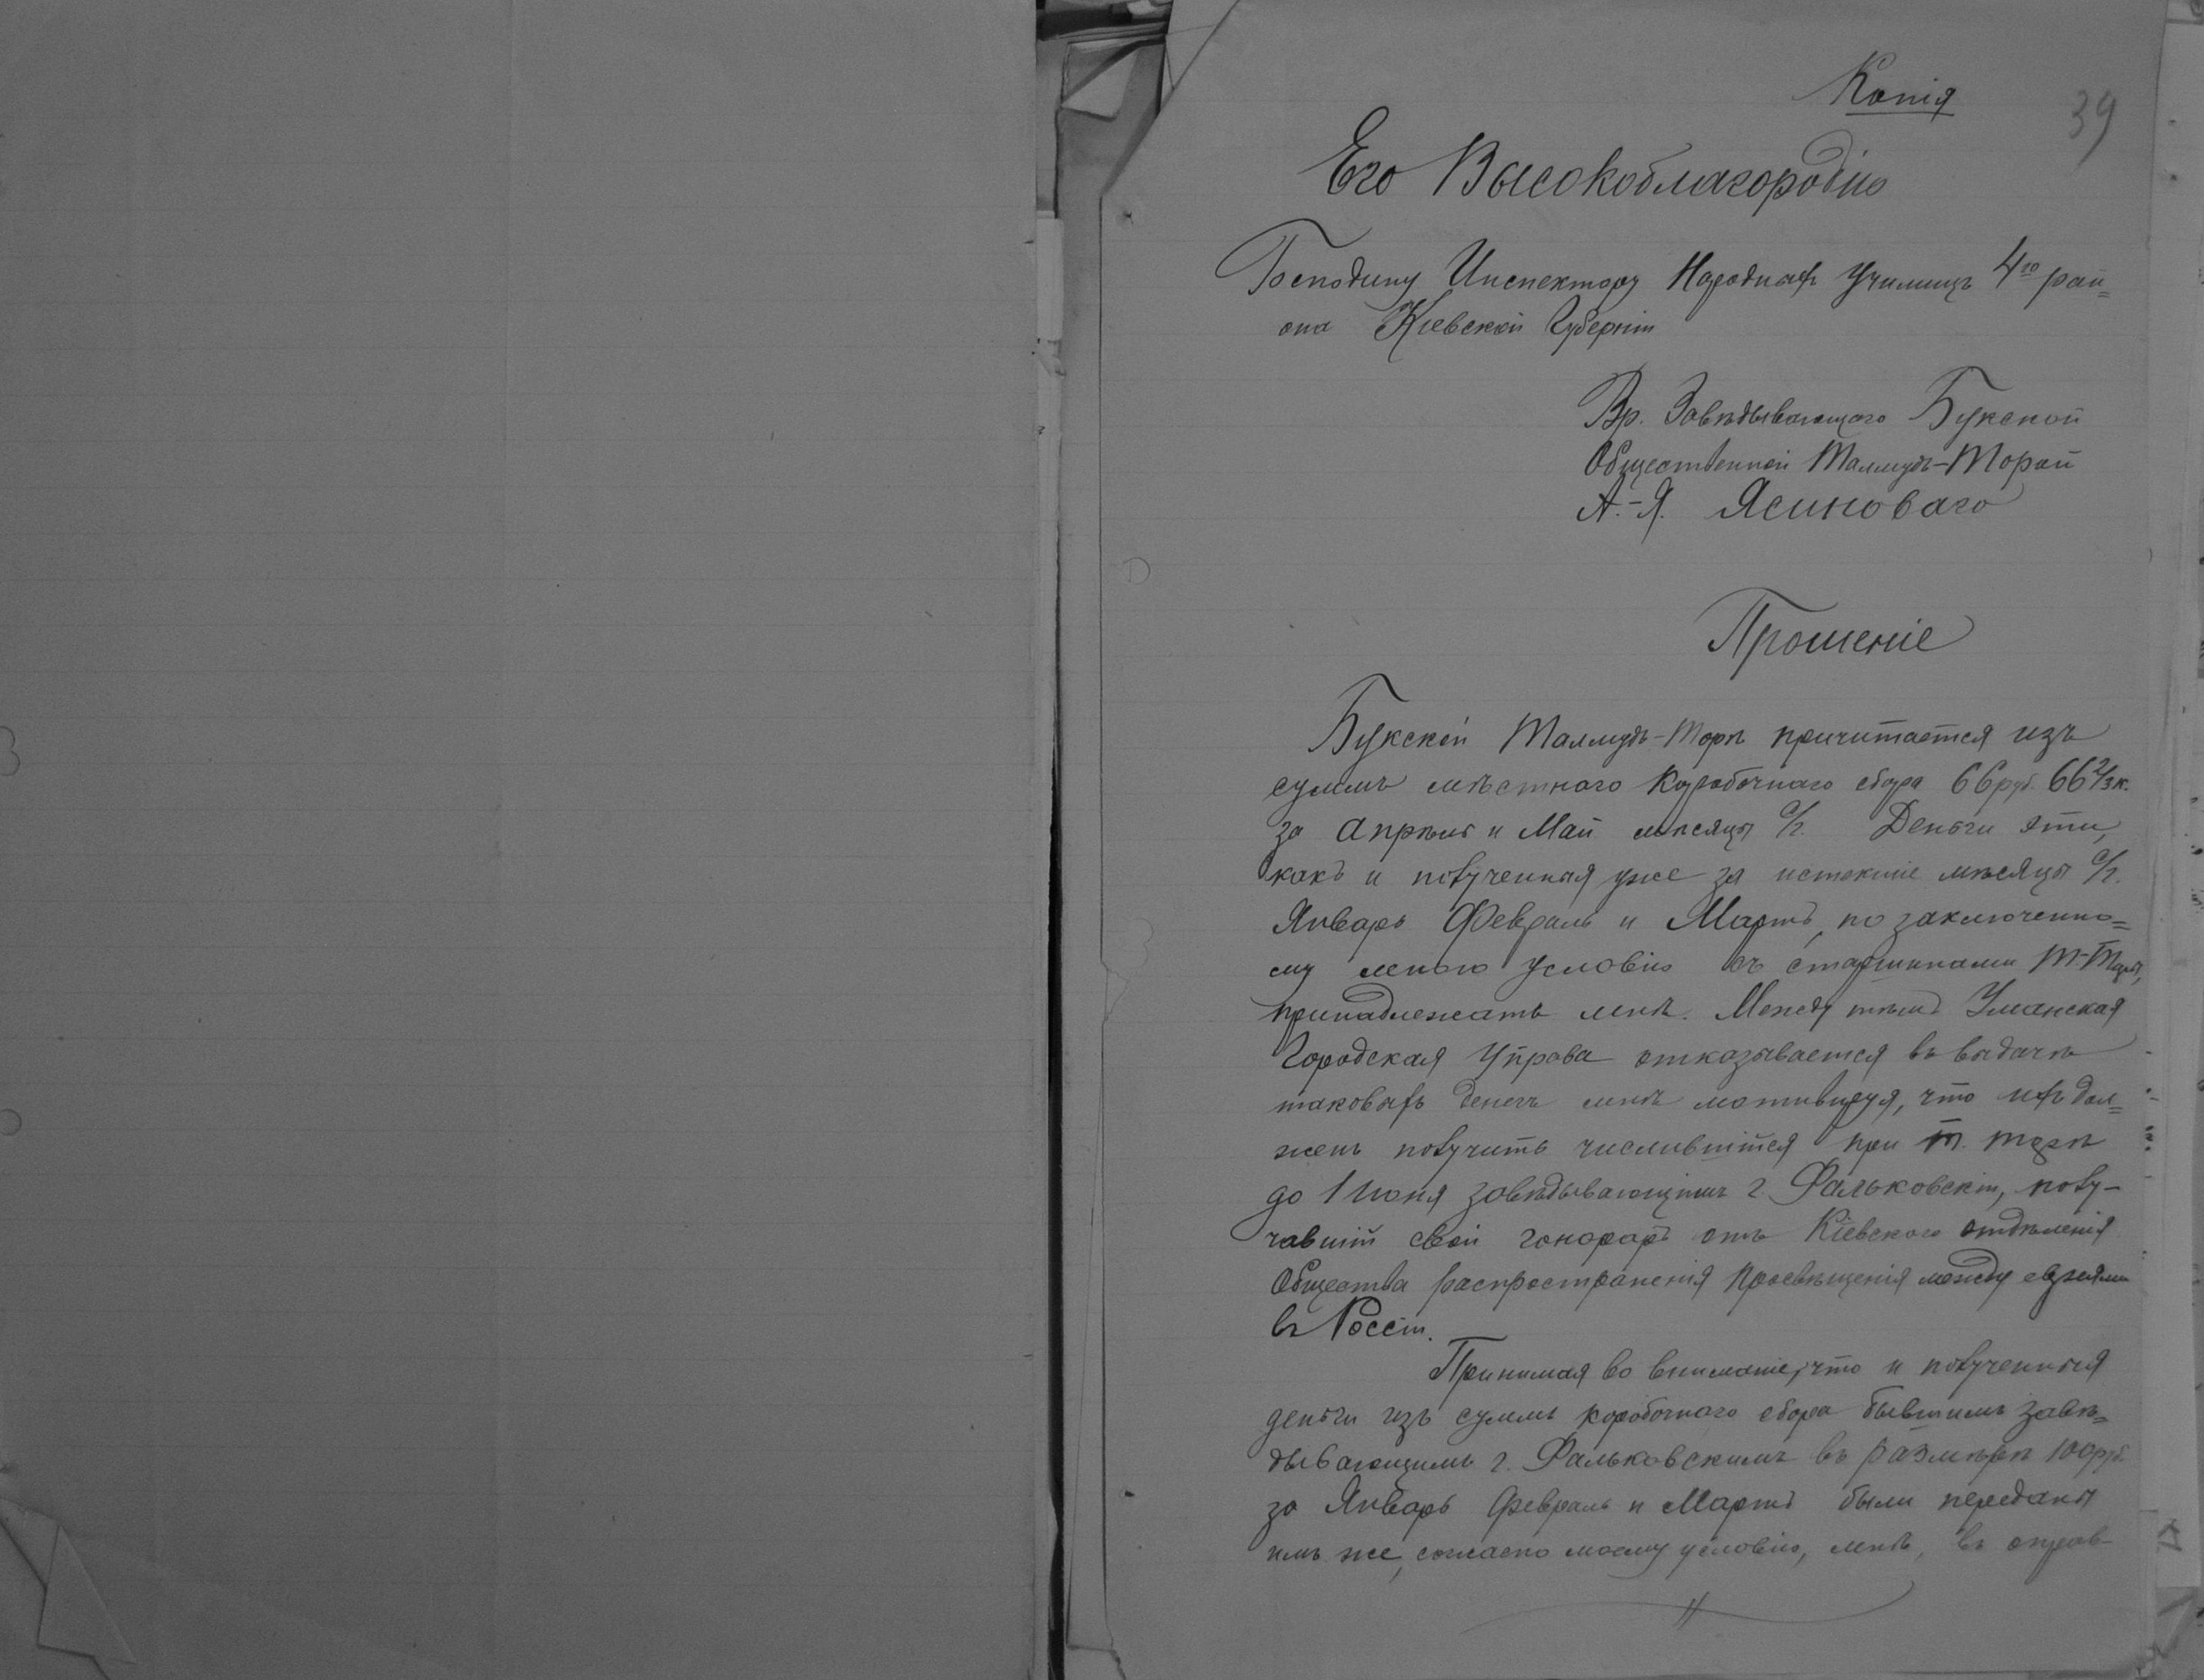 Копія
39
Его Высокоблагородію
Господину Инспектору Народныхъ Училищъ 4го рай=
она Кіевской Губерніи
Вр. Завѣдывающаго Букской
Общественной Талмудъ-Торой
А.-Я. Ясиноваго
Прошеніе
Букской Талмудъ-Торѣ причитается изъ
суммъ мѣстнаго Коробочнаго сбора 66 руб. 66 2/3 к.
за Апрѣль и Май мѣсяцы с/г. Деньги эти,
какъ и полученныя уже за истекшіе мѣсяцы с/г.
Январь Февраль и Мартъ, по заключенно=
му мною условію съ старшинами Т-Торы,
принадлежатъ мнѣ. Между тѣмъ Уманская
Городская Управа отказывается въ выдачѣ
таковыхъ денегъ мнѣ мотивируя, что ихъ дол=
женъ получить числившійся при Т. Торѣ
до 1 Июня завѣдывающимъ г. Фальковскій, полу-
чавшій свой гонораръ отъ Кіевскаго отдѣленія
Общества распространенія Просвѣщенія между евреями
въ Россіи.
Принимая во вниманіе, что и полученныя
деньги изъ суммъ коробочнаго сбора бывшимъ завѣ=
дывающимъ г. Фальковскимъ въ размѣрѣ 100 руб.
за Январь Февраль и Мартъ были переданы
имъ же, согласно моему условію, мнѣ, въ оправ-